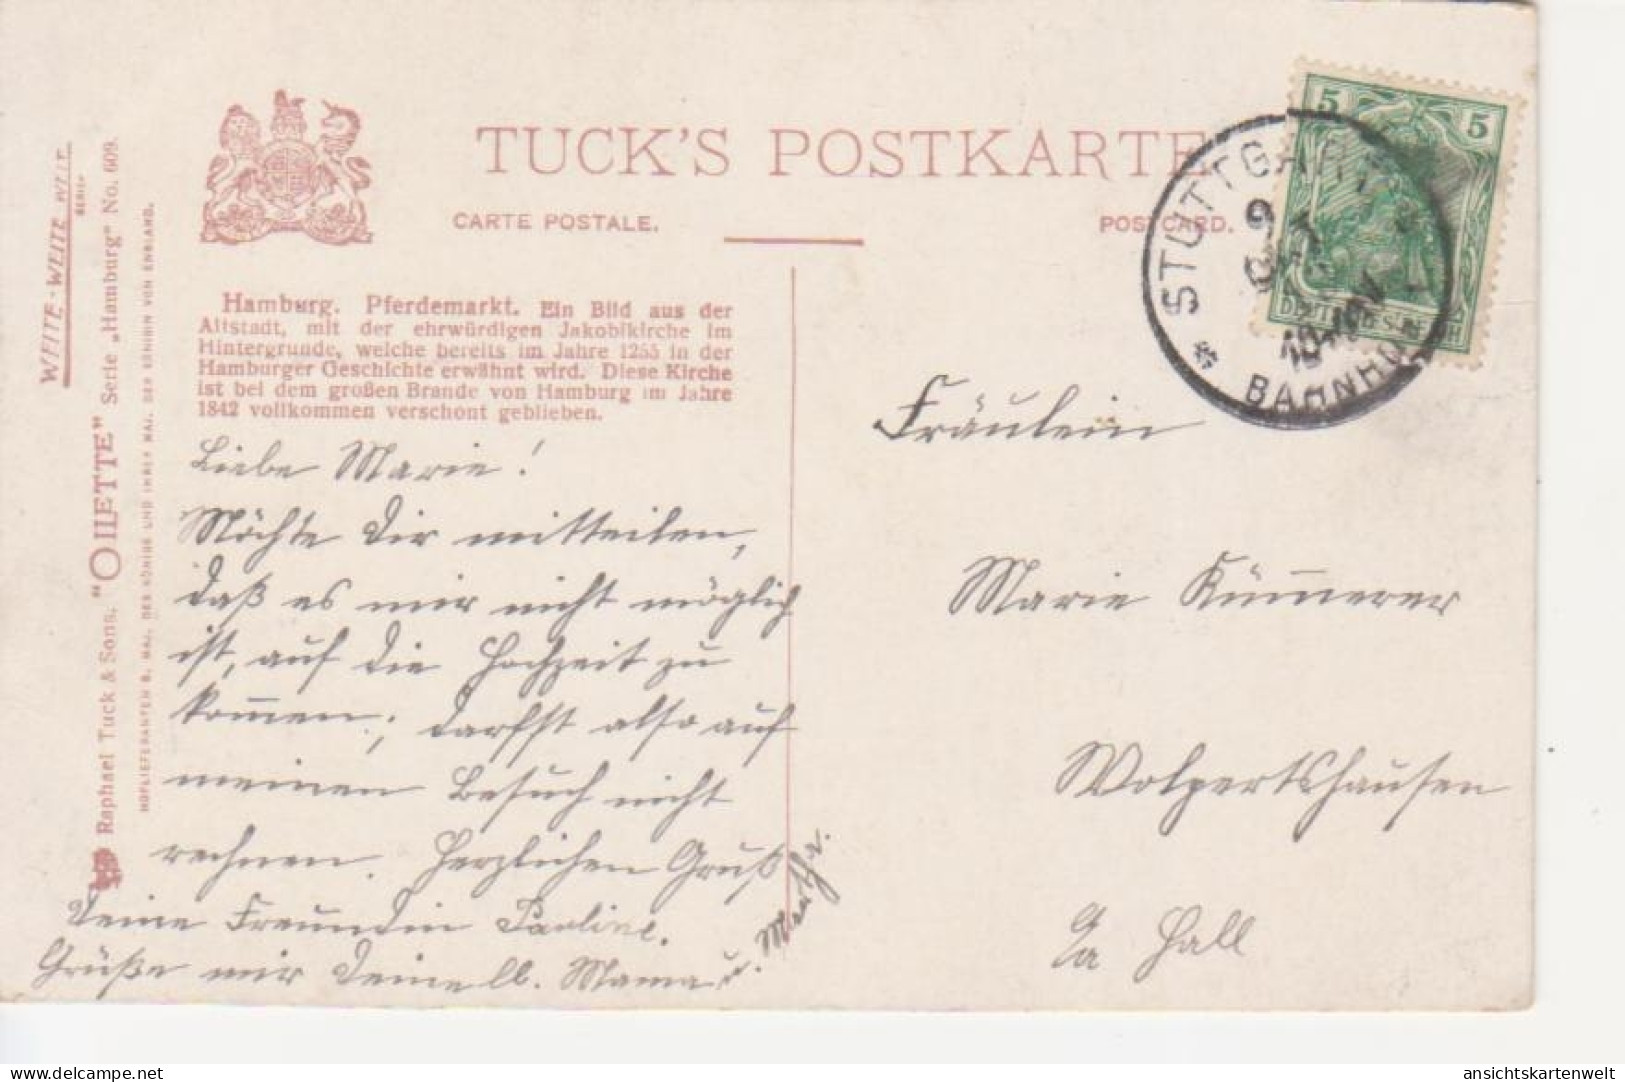 TUCK'S POSTKARTE
CARTE POSTALE.
POSTCARD.
5
5
DEUTSCHES REICH
* STUTTGART
9
10-11 V
BAHNHOF
WEITE-WEITE WELT
SERIE
Raphael Tuck & Sons. "OILETTE" Serie „Hamburg" No. 609.
HOFLIEFERANTEN S. MAJ. DES KÖNIGS UND IHRER MAJ. DER KÖNIGIN VON ENGLAND.
Hamburg. Pferdemarkt. Ein Bild aus der
Altstadt, mit der ehrwürdigen Jakobikirche im
Hintergrunde, welche bereits im Jahre 1255 in der
Hamburger Geschichte erwähnt wird. Diese Kirche
ist bei dem großen Brande von Hamburg im Jahre
1842 vollkommen verschont geblieben.
Liebe Marie!
Möchte Dir mitteilen,
daß es mir nicht möglich
ist, auf die Hochzeit zu
kommen; darfst also auf
meinen Besuch nicht
rechnen. Herzlichen Gruß
Deine Freundin Pauline.
Grüße mir Deine lb. Mama
Fräulein
Marie Kümmerer
Wolpertshausen
Hall
ansichtskartenwelt
www.delcampe.net